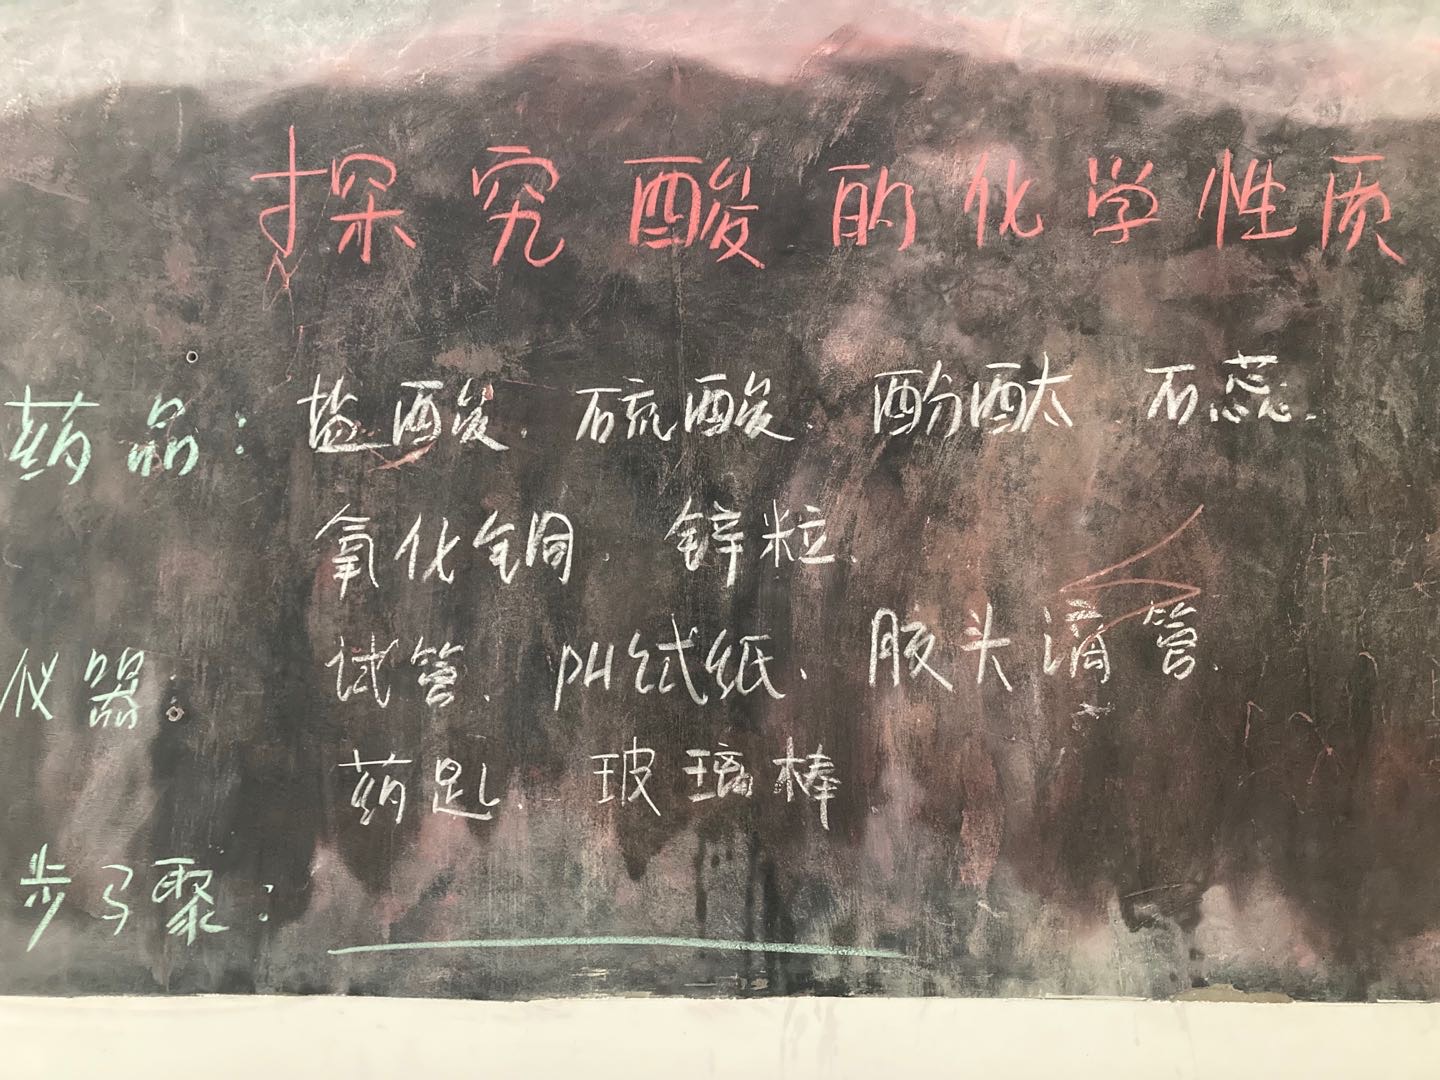 探究酸的化学性质
药品：盐酸、硫酸、酚酞、石蕊、
氧化铜、锌粒、
仪器：试管、pH试纸、胶头滴管、
药匙、玻璃棒
步骤：